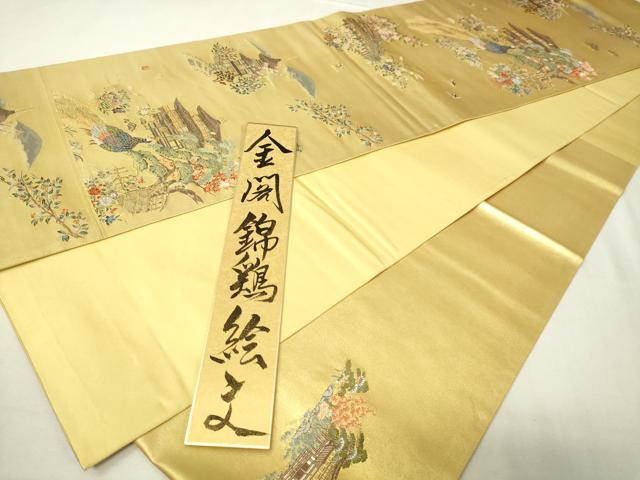 金閣錦鶏絵文